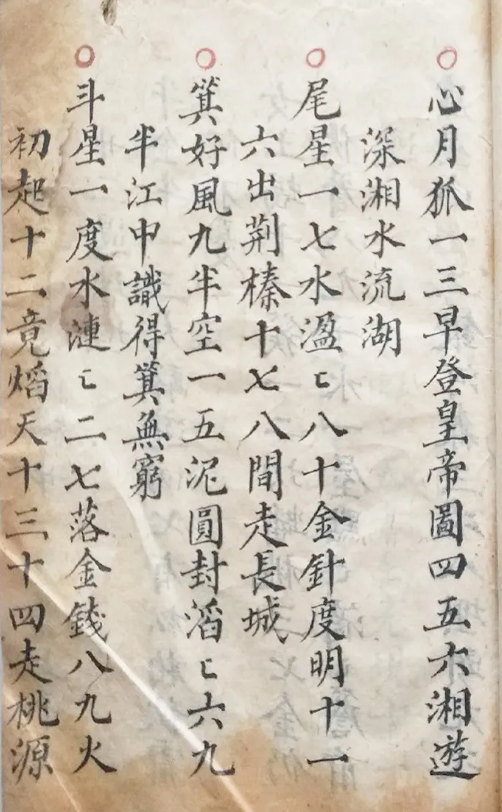 心月狐一三早登皇帝圖四五六湘遊
深湘水流湖
尾星一七水溋〻八十金針度明十一
六出荆榛十七八間走長城
箕好風九半空一五泥圓封滔〻六九
半江中識得箕無窮
斗星一度水漣〻二七落金錢八九火
初起十二竟熖天十三十四走桃源